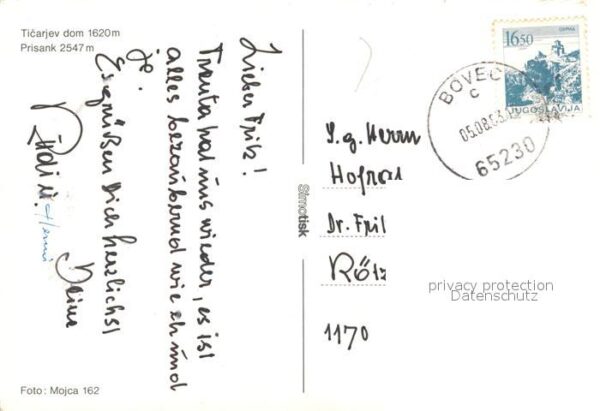 Tičarjev dom 1620 m
Prisank 2547 m
Lieber Fritz!
Trenta hat uns wieder, es ist
alles bezaubernd wie eh und
je.
Es grüßen Dich herzlichst
Deine
Foto: Mojca 162
Simotisk
16.50
JUGOSLAVIJA
BOVEC
C
05.08.83
65230
S. g. Herrn
Hofrat
Dr. Fritz
Rötz
1170
privacy protection
Datenschutz